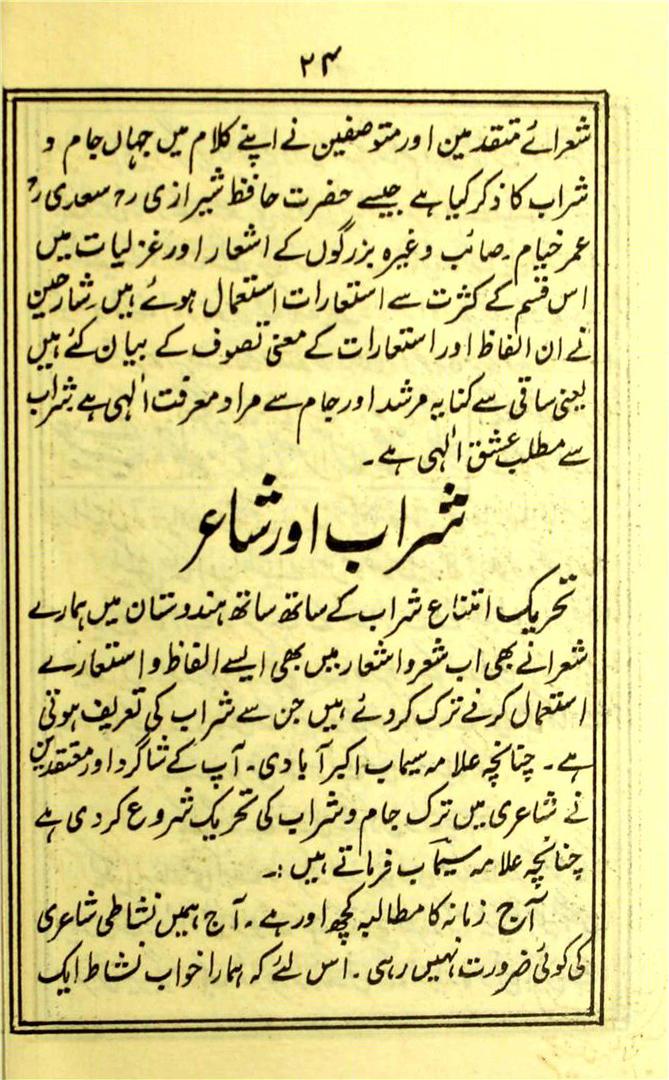 ۲۴
شعرائے متقدمین اور متوصفین نے اپنے کلام میں جہاں جام و
شراب کا ذکر کیا ہے جیسے حضرت حافظ شیرازی رح سعدی رح
عمر خیام۔ صائب وغیرہ بزرگوں کے اشعار اور غزلیات میں
اس قسم کے کثرت سے استعارات استعمال ہوئے ہیں۔ شارحین
نے ان الفاظ اور استعارات کے معنی تصوف کے بیان کئے ہیں
یعنی ساقی سے کنایہ مرشد اور جام سے مراد معرفت الٰہی ہے شراب
سے مطلب عشق الٰہی ہے۔
شراب اور شاعر
تحریک امتناع شراب کے ساتھ ساتھ ہندوستان میں ہمارے
شعرا نے بھی اب شعر و اشعار میں بھی ایسے الفاظ و استعارے
استعمال کرنے ترک کر دئے ہیں جن سے شراب کی تعریف ہوتی
ہے۔ چنانچہ علامہ سیماب اکبر آبادی۔ آپ کے شاگرد اور معتقدین
نے شاعری میں ترک جام و شراب کی تحریک شروع کر دی ہے
چنانچہ علامہ سیماب فرماتے ہیں :۔
آج زمانہ کا مطالبہ کچھ اور ہے۔ آج ہمیں نشاطی شاعری
کی کوئی ضرورت نہیں رہی۔ اس لئے کہ ہمارا خواب نشاط ایک